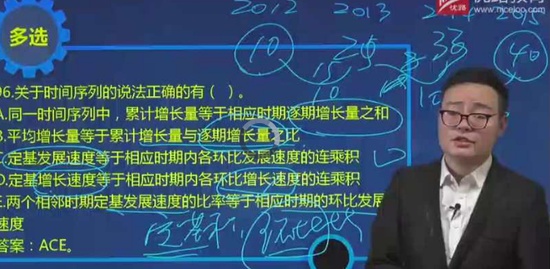 多选
2012 2013 2015
优路教育
www.niceloo.com
10 25 33 40
15
10
96.关于时间序列的说法正确的有（ ）。
A.同一时间序列中，累计增长量等于相应时期逐期增长量之和
B.平均增长量等于累计增长量与逐期增长量之比
C.定基发展速度等于相应时期内各环比发展速度的连乘积
D.定基增长速度等于相应时期内各环比增长速度的连乘积
E.两个相邻时期定基发展速度的比率等于相应时期的环比发展
速度
答案：ACE。